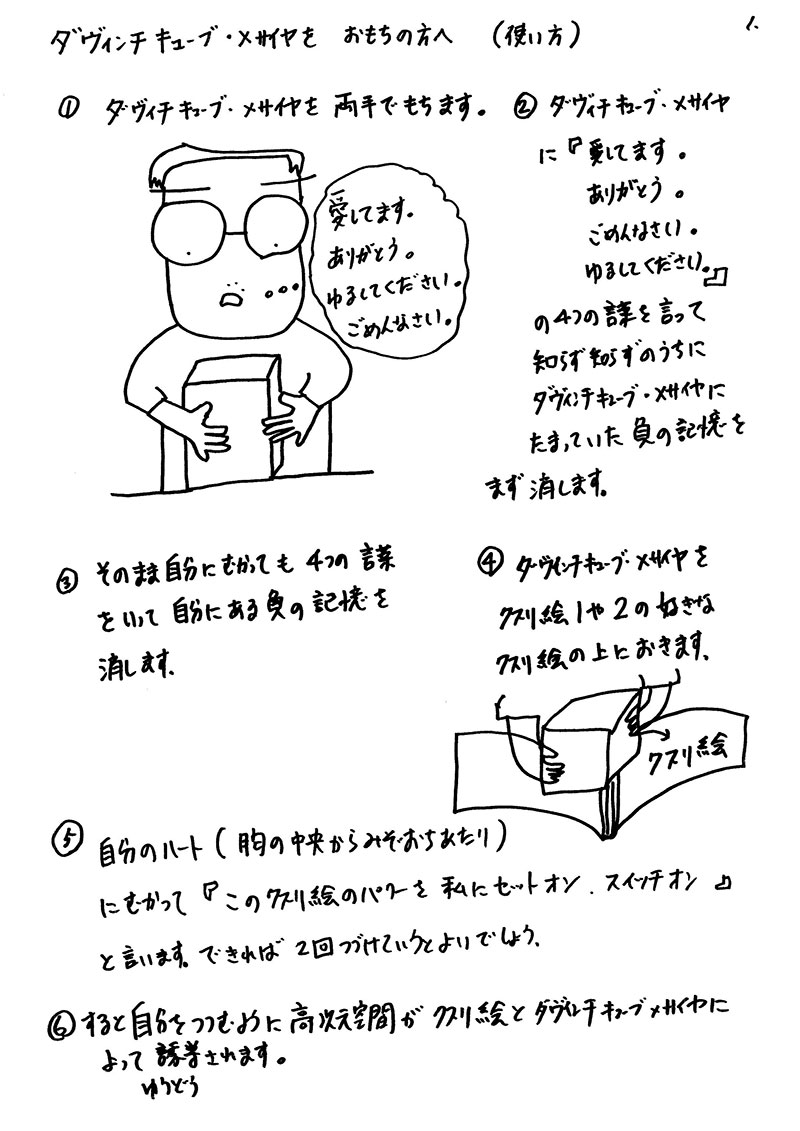 1.
ダヴィンチキューブ・メサイヤを おもちの方へ (使い方)
① ダヴィチキューブ・メサイヤを 両手でもちます。
愛してます。
ありがとう。
ゆるしてください。
ごめんなさい。
② ダヴィチキューブ・メサイヤ
に『愛してます。
ありがとう。
ごめんなさい。
ゆるしてください。』
の4つの言葉を言って
知らず知らずのうちに
ダヴィンチキューブ・メサイヤに
たまっていた負の記憶を
まず消します。
③ そのまま自分にむかっても4つの言葉
をいって自分にある負の記憶を
消します。
④ ダヴィンチキューブ・メサイヤを
クスリ絵1や2の好きな
クスリ絵の上におきます。
クスリ絵
⑤ 自分のハート(胸の中央からみぞおちあたり)
にむかって『このクスリ絵のパワーを私にセットオン.スイッチオン』
と言います。できれば2回つづけていうとよいでしょう。
⑥ すると自分をつつむように高次元空間がクスリ絵とダヴィンチキューブメサイヤに
よって誘導されます。
ゆうどう